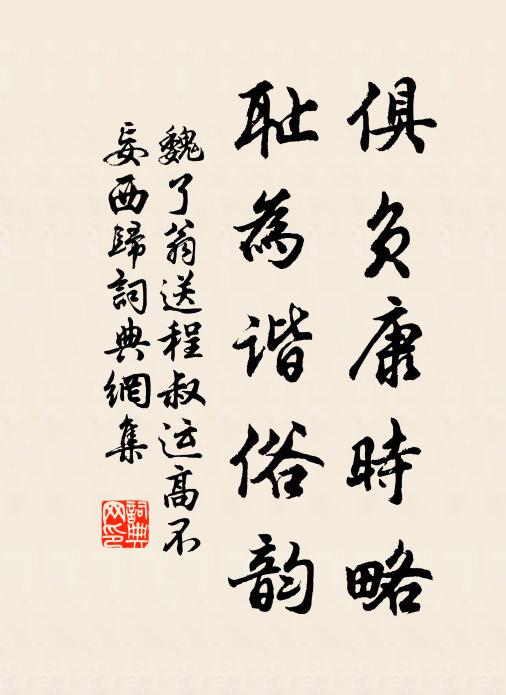 俱負康時略
耻為谐俗韵
魏了翁送程叔运高不
妄西歸詞典網集
詞典网印